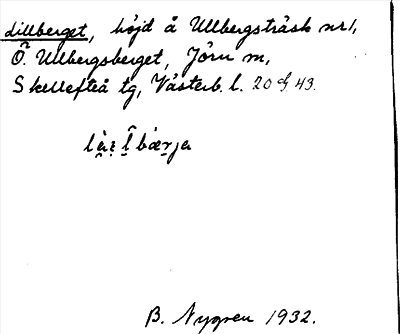 dillberget, höjd å Ullbergsträsk nr 1,
Ö. Ullbergsberget, Jörn sn,
Skellefteå tg, Västerb. l. 20 43.
B. Nygren 1932.